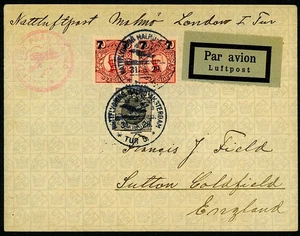 Nattluftpost Malmö London I Tur
7 7
Par avion
Luftpost
TUR 5
Francis J Field
Sutton Coldfield
England